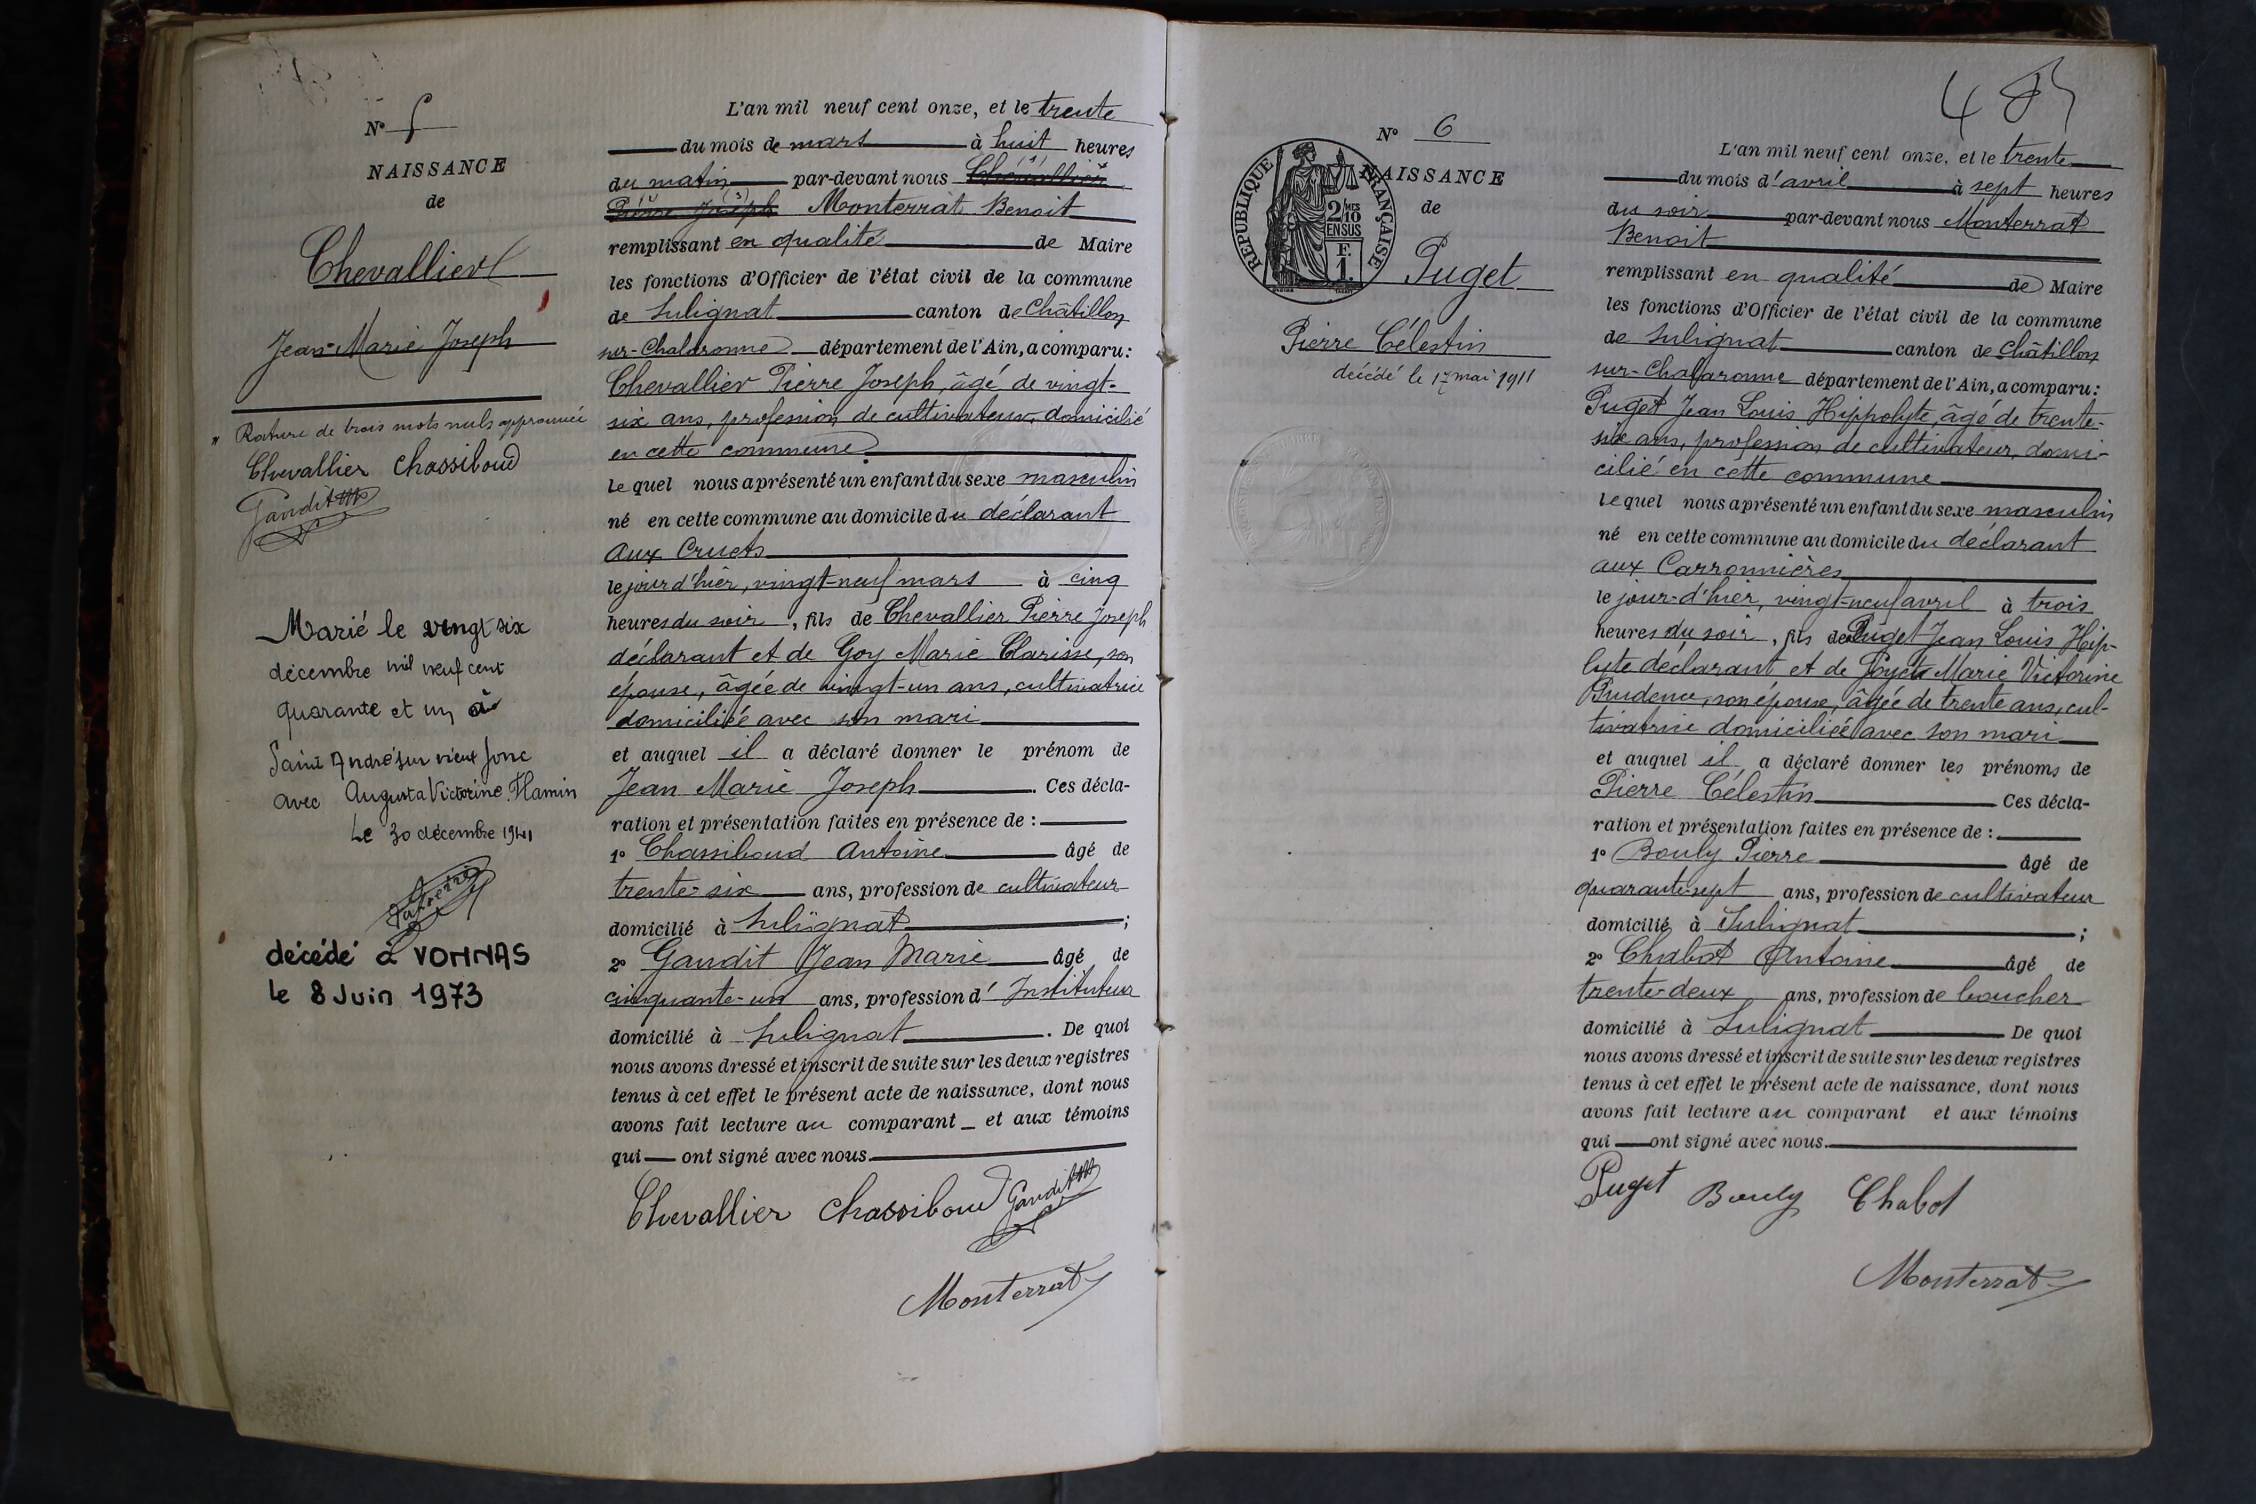 N° 5
NAISSANCE
de
Chevallier
Jean-Marie Joseph
* Rature de trois mots nuls approuvée
Chevallier Chassiboud
Gaudit JM
Marié le vingt six
décembre mil neuf cent
quarante et un à
Saint André sur vieux Jonc
avec Augusta Victorine Hamin
Le 30 décembre 1941
décédé à VONNAS
le 8 Juin 1973
L'an mil neuf cent onze, et le trente
du mois de mars à huit heures
du matin par-devant nous Chevallier
Pierre Joseph Monterrat Benoit
remplissant en qualité de Maire
les fonctions d'Officier de l'état civil de la commune
de Sulignat canton de Châtillon
sur-Chalaronne département de l'Ain, a comparu:
Chevallier Pierre Joseph, âgé de vingt-
six ans, profession de cultivateur, domicilié
en cette commune
le quel nous a présenté un enfant du sexe masculin
né en cette commune au domicile du déclarant
aux Cruets
le jour d'hier, vingt-neuf mars à cinq
heures du soir, fils de Chevallier Pierre Joseph
déclarant et de Goy Marie Clarisse, son
épouse, âgée de vingt-un ans, cultivatrice
domiciliée avec son mari
et auquel il a déclaré donner le prénom de
Jean Marie Joseph. Ces décla-
ration et présentation faites en présence de:
1° Chassiboud Antoine âgé de
trente-six ans, profession de cultivateur
domicilié à Sulignat;
2° Gaudit Jean Marie âgé de
cinquante-un ans, profession d'Instituteur
domicilié à Sulignat. De quoi
nous avons dressé et inscrit de suite sur les deux registres
tenus à cet effet le présent acte de naissance, dont nous
avons fait lecture au comparant et aux témoins
qui ont signé avec nous.
Chevallier Chassiboud Gaudit JM
Monterrat
N° 6
NAISSANCE
de
RÉPUBLIQUE FRANÇAISE
2/10 MES
EN SUS
F.
1.
Puget
Pierre Célestin
décédé le 17 mai 1911
L'an mil neuf cent onze, et le trente
du mois d'avril à sept heures
du soir par-devant nous Monterrat
Benoit
remplissant en qualité de Maire
les fonctions d'Officier de l'état civil de la commune
de Sulignat canton de Châtillon
sur-Chalaronne département de l'Ain, a comparu:
Puget Jean Louis Hippolyte, âgé de trente-
six ans, profession de cultivateur, domi-
cilié en cette commune
le quel nous a présenté un enfant du sexe masculin
né en cette commune au domicile du déclarant
aux Carronnières
le jour-d'hier, vingt-neuf avril à trois
heures du soir, fils de Puget Jean Louis Hip-
lyte déclarant et de Marie Victorine
Prudence, son épouse, âgée de trente ans, cul-
tivatrice domiciliée avec son mari
et auquel il a déclaré donner les prénoms de
Pierre Célestin Ces décla-
ration et présentation faites en présence de:
1° Bouly Pierre âgé de
quarante-sept ans, profession de cultivateur
domicilié à Sulignat;
2° Chabot Antoine âgé de
trente-deux ans, profession de boucher
domicilié à Sulignat De quoi
nous avons dressé et inscrit de suite sur les deux registres
tenus à cet effet le présent acte de naissance, dont nous
avons fait lecture au comparant et aux témoins
qui ont signé avec nous.
Puget Bouly Chabot
Monterrat